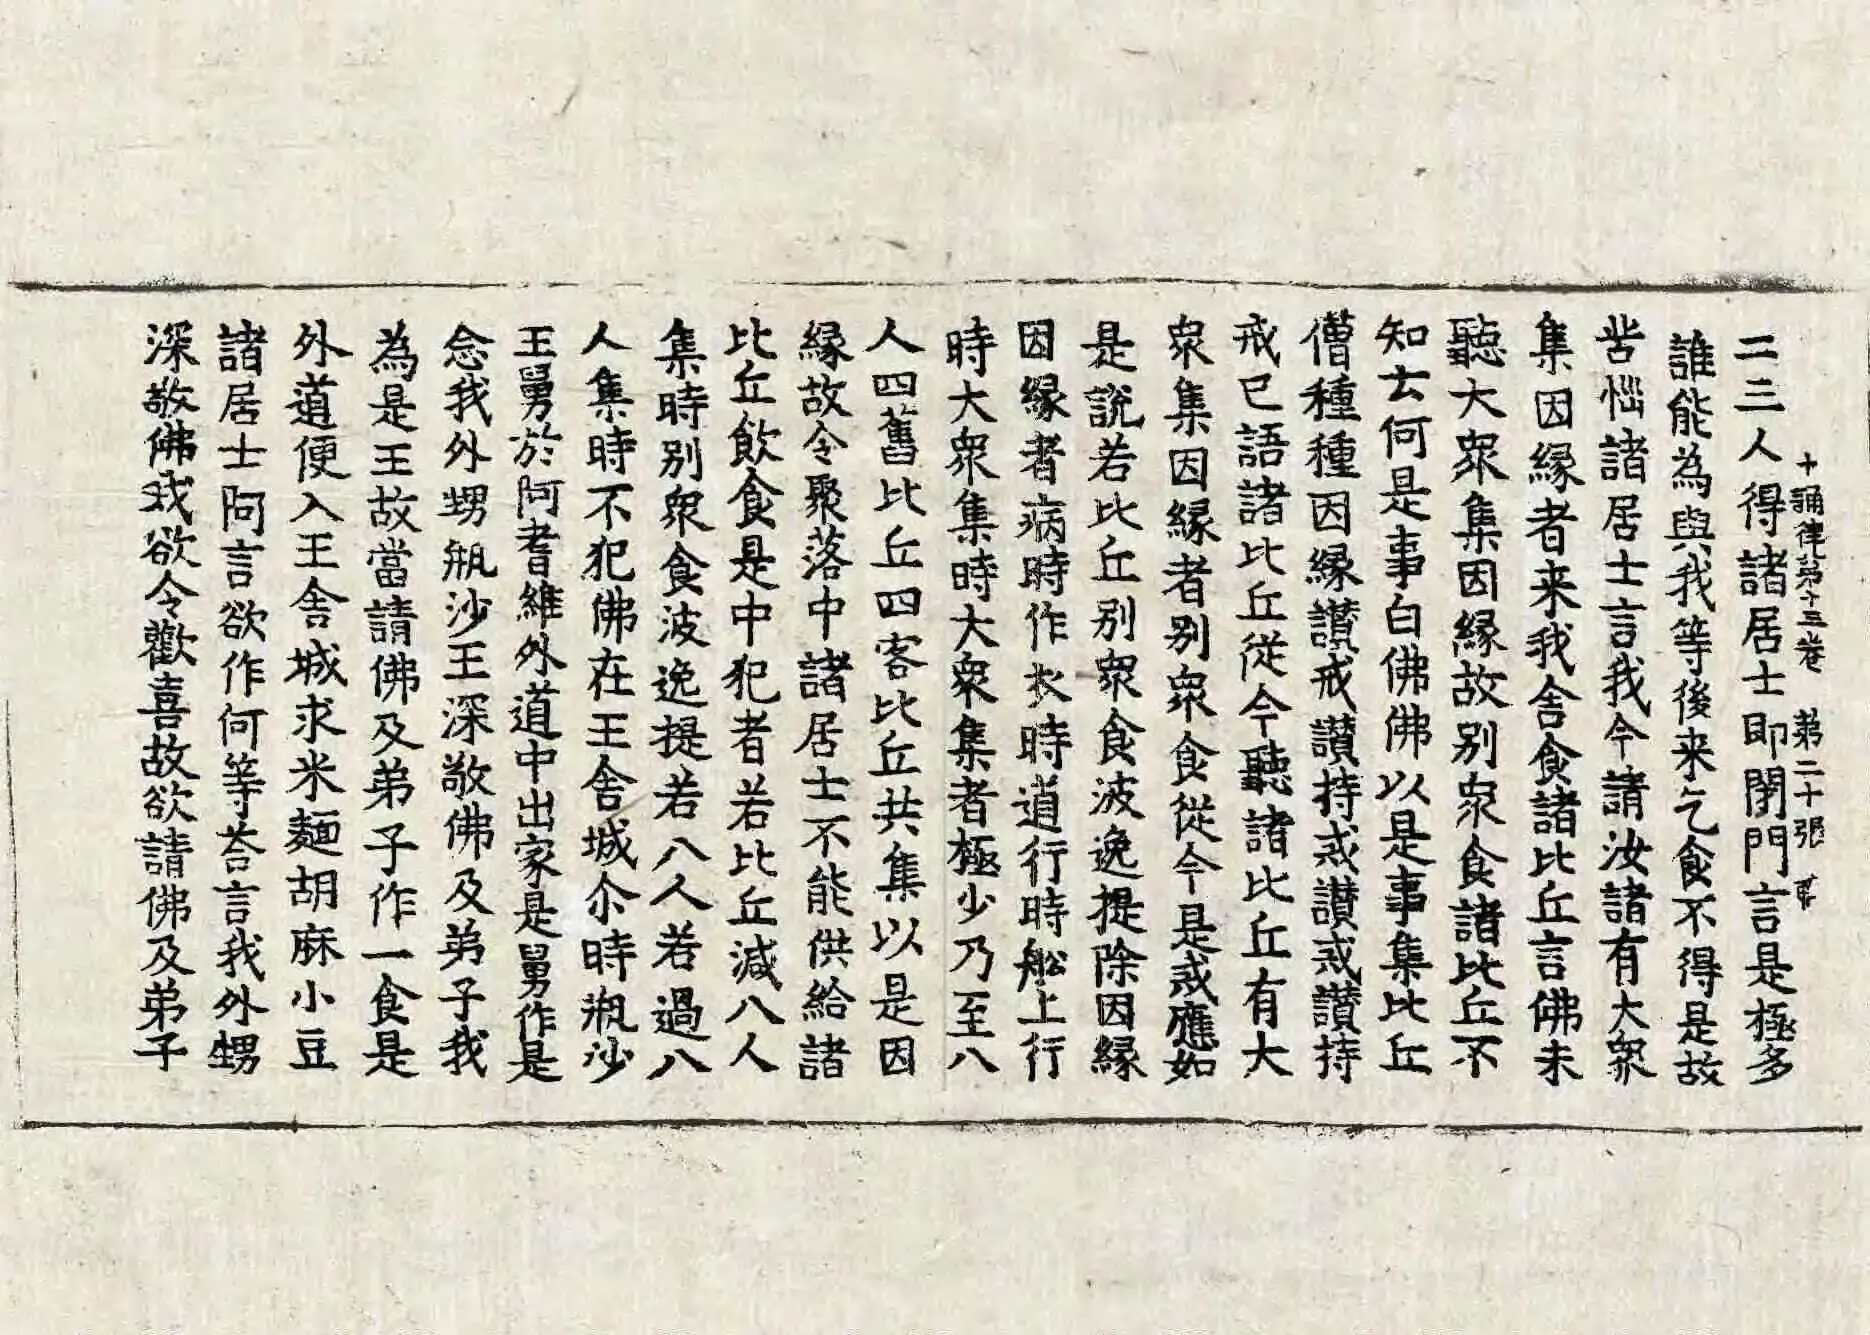 十誦律苐十三卷 苐二十張
二三人得諸居士即閇門言是極多
誰能為與我等後来乞食不得是故
呰惱諸居士言我今請汝諸有大衆
集因縁者来我舎食諸比丘言佛未
聽大衆集因縁故別衆食諸比丘不
知云何是事白佛佛以是事集比丘
僧種種因縁讃戒讃持戒讃戒讃持
戒已語諸比丘従今聽諸比丘有大
衆集因縁者別衆食従今是戒應如
是説若比丘別衆食波逸提除因縁
因縁者病時作衣時道行時舩上行
時大衆集時大衆集者極少乃至八
人四舊比丘四客比丘共集以是因
縁故令聚落中諸居士不能供給諸
比丘飲食是中犯者若比丘減八人
集時別衆食波逸提若八人若過八
人集時不犯佛在王舎城尒時瓶沙
王舅於阿耆維外道中出家是舅作是
念我外甥瓶沙王深敬佛及弟子我
為是王故當請佛及弟子作一食是
外道便入王舎城求米麵胡麻小豆
諸居士問言欲作何等荅言我外甥
深敬佛我欲令歡喜故欲請佛及弟子